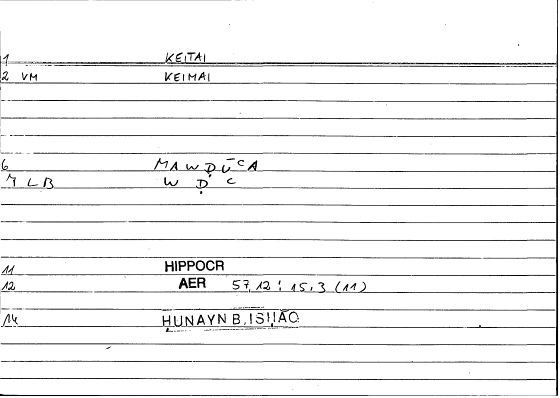 1 KEITAI
2 VM KEIMAI
6 MAWḌŪʿA
7 LB W Ḍ ʿ
11 HIPPOCR
12 AER 57,12 : 15,3 (11)
14 ḤUNAYN B. ISḤĀQ